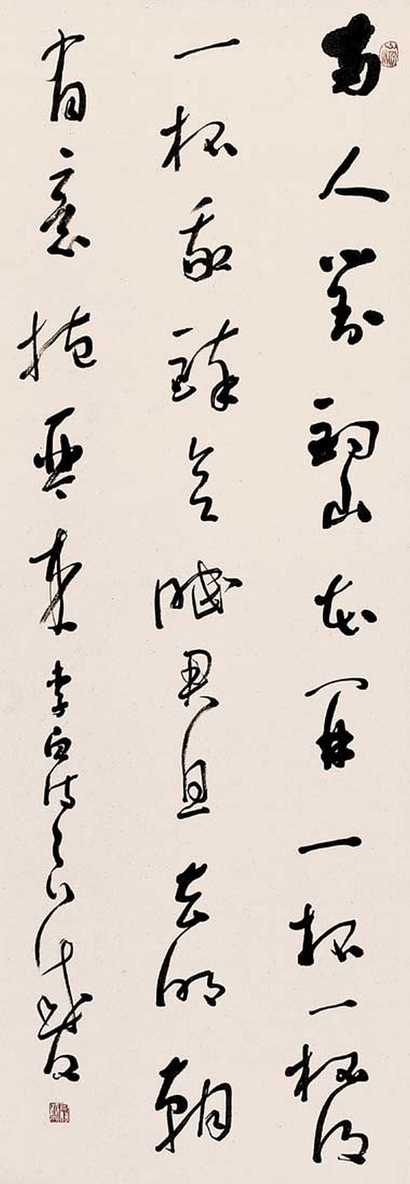 兩人對酌山花開一杯一杯復
一杯我醉欲眠君且去明朝
有意抱琴來 李白詩